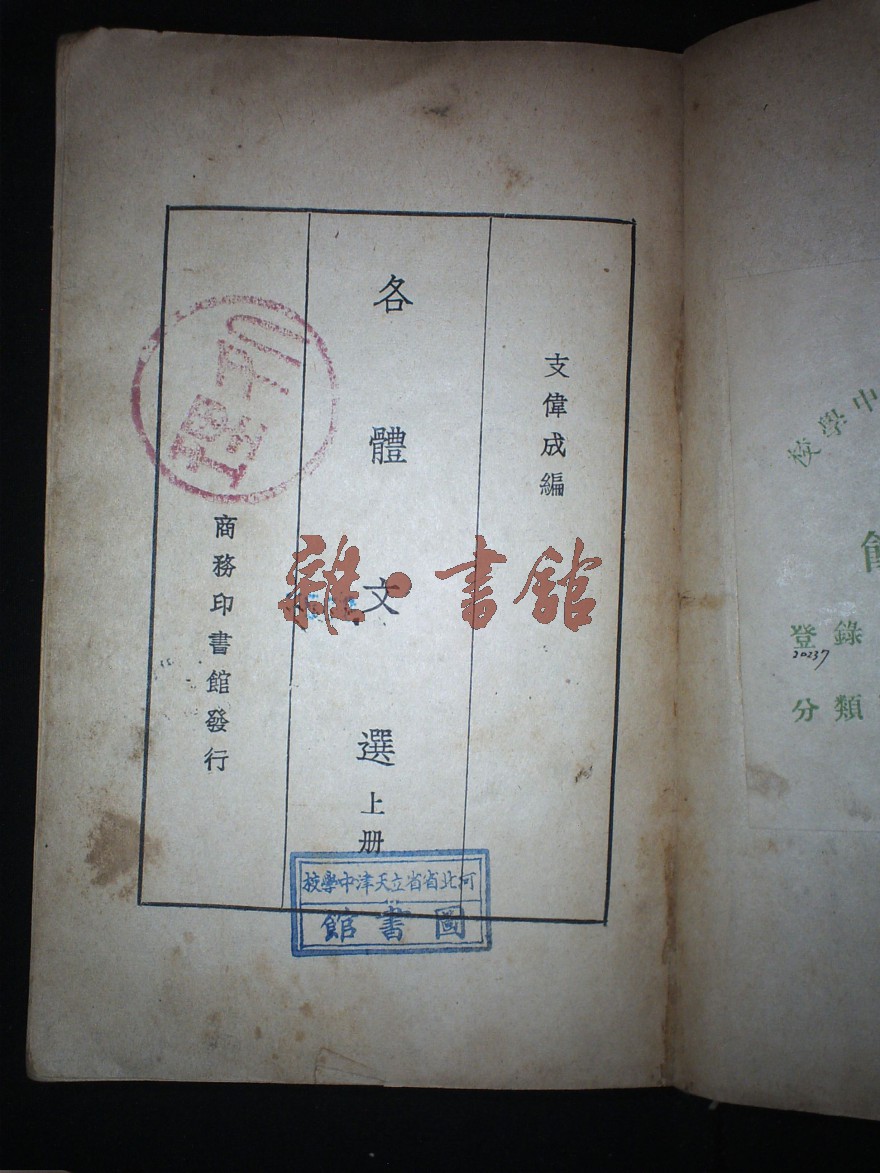 支偉成編
各體文選上册
商務印書館發行
雜·書館
河北省省立天津中學校
圖書館
學中
校
館
登錄
20237
分類